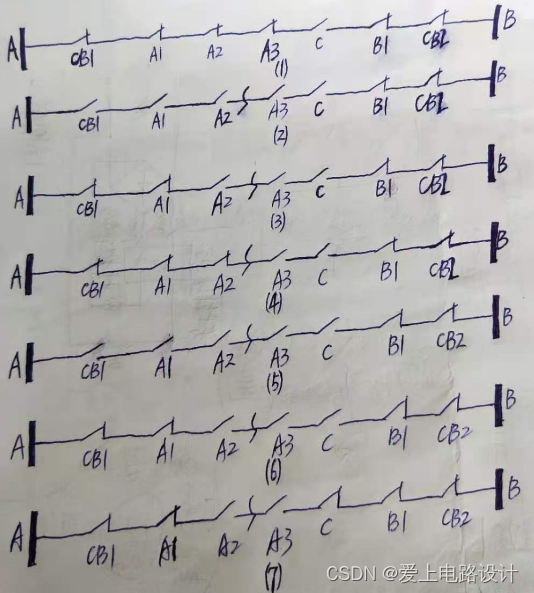 A CB1 A1 A2 A3 C B1 CB2 B
(1)
A CB1 A1 A2 A3 C B1 CB2 B
(2)
A CB1 A1 A2 A3 C B1 CB2 B
(3)
A CB1 A1 A2 A3 C B1 CB2 B
(4)
A CB1 A1 A2 A3 C B1 CB2 B
(5)
A CB1 A1 A2 A3 C B1 CB2 B
(6)
A CB1 A1 A2 A3 C B1 CB2 B
(7)
CSDN @爱上电路设计